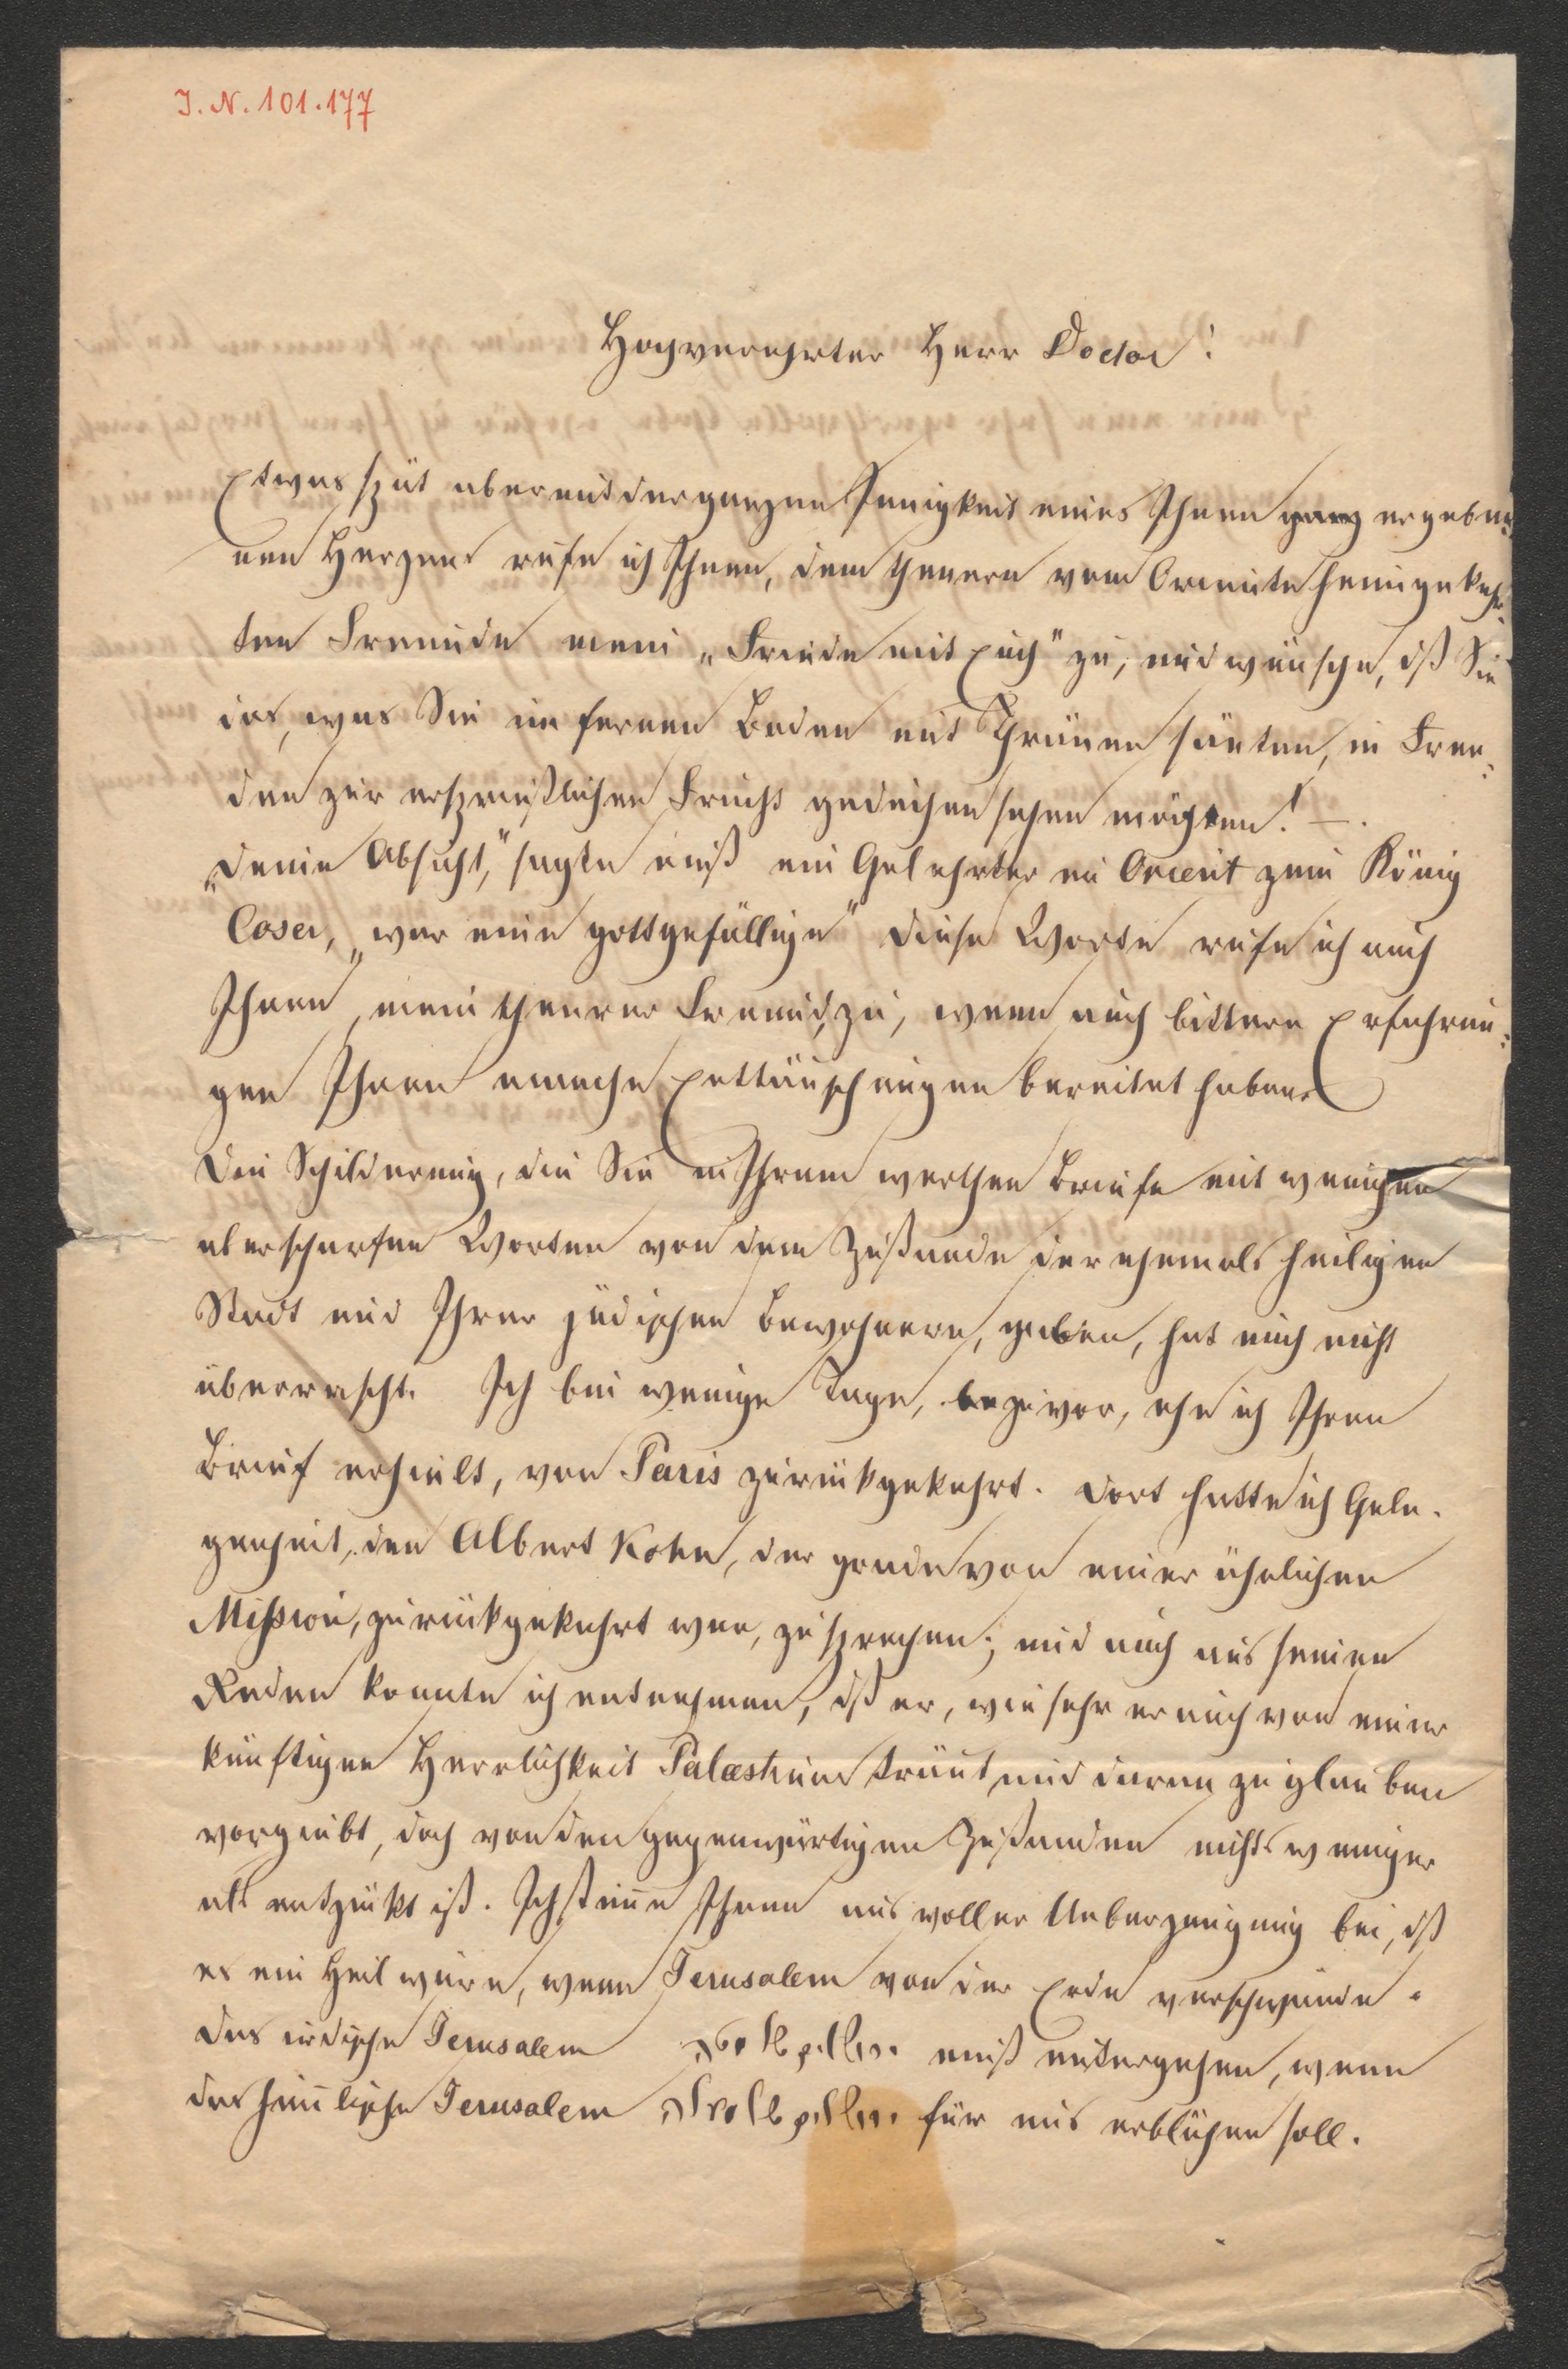 I. N. 101.177
Hochverehrter Herr Doctor!
Etwas spät aber mit der ganzen Innigkeit eines Ihnen ganz ergebe-
nen Herzens rufe ich Ihnen, dem theuern vom Oriente heimgekehr-
ten Freunde mein „Friede mit Euch" zu, und wünsche, dß Sie
das, was Sie im fernen Boden mit Thränen säeten, in Freu-
den zur ersprießlichen Frucht gedeihen sehen möchten! —.
„Deine Absicht," sagte einst ein Gelehrter im Orient zum König
Coser, „war eine gottgefällige" Diese Worte rufe ich auch
Ihnen, mein theurer Freund, zu, wenn auch bittere Erfahrun-
gen Ihnen manche Enttäuschungen bereitet haben.
Die Schilderung, die Sie in Ihrem werthen Briefe mit wenigen
aber scharfen Worten von dem Zustande der ehemals heiligen
Stadt und Ihrer jüdischen Bewohnern, geben, hat mich nicht
überrascht. Ich bin wenige Tage, bezuvor, ehe ich Ihren
Brief erhielt, von Paris zurückgekehrt. Dort hatte ich Gele-
genheit, den Albert Kohn, der grade von einer ähnlichen
Mission, zurückgekehrt war, zu sprechen; und auch aus seinen
Reden konnte ich entnehmen, dß er, wie sehr er auch von einer
künftigen Herrlichkeit Palæstinas träumt und daran zu glauben
vorgiebt, doch von den gegenwärtigen Zuständen nichts weniger
als entzückt ist. Ich stim̄e Ihnen aus voller Ueberzeugung bei, dß
es ein Heil wäre, wenn Jerusalem von der Erde verschwinde.
Das irdische Jerusalem ירושלים של מטה muß untergehen, wenn
das him̄lische Jerusalem ירושלים של מעלה für uns erblühen soll.